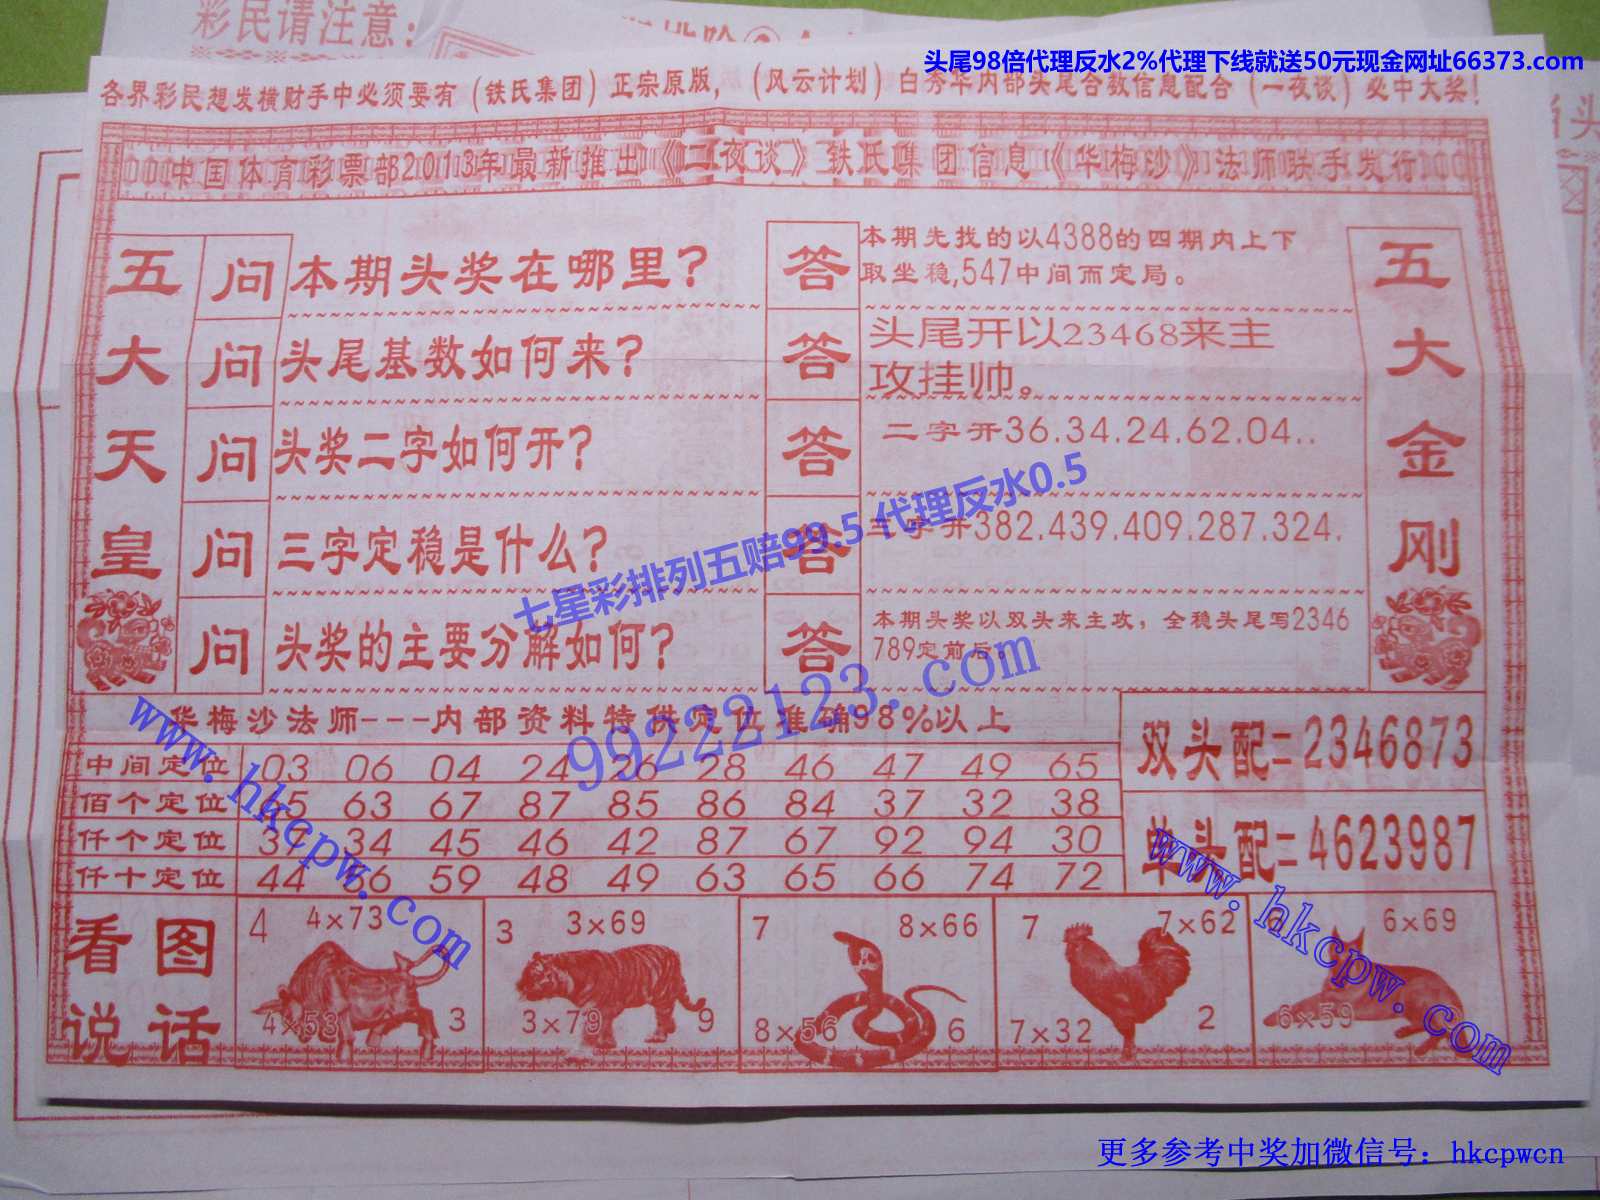 彩民请注意:
头尾98倍代理反水2%代理下线就送50元现金网址66373.com
各界彩民想发横财手中必须要有(铁氏集团)正宗原版,(风云计划)白秀华内部头尾合数信息配合(一夜谈)必中大奖!
中国体育彩票部2013年最新推出《二夜谈》铁氏集团信息《华梅沙》法师联手发行
五大天皇
问 本期头奖在哪里?
答 本期先找的以4388的四期内上下
取坐稳,547中间而定局。
问 头尾基数如何来?
答 头尾开以23468来主
攻挂帅。
问 头奖二字如何开?
答 二字开36.34.24.62.04..
问 三字定稳是什么?
答 三字开382.439.409.287.324.
问 头奖的主要分解如何?
答 本期头奖以双头来主攻,全稳头尾写2346
789定前后。
五大金刚
七星彩排列五赔99.5 代理反水0.5
99222123.com
华梅沙法师---内部资料特供定位准确98%以上
中间定位 03 06 04 24 26 28 46 47 49 65
佰个定位 65 63 67 87 85 86 84 37 32 38
仟个定位 37 34 45 46 42 87 67 92 94 30
仟十定位 44 56 59 48 49 63 65 66 74 72
双头配=2346873
单头配=4623987
www.hkcpw.com
www.hkcpw.com
看图
说话
4 4×73
4×53 3
3 3×69
3×79 9
7 8×66
8×56 6
7 7×62
7×32 2
6 6×69
6×59
更多参考中奖加微信号: hkcpwcn